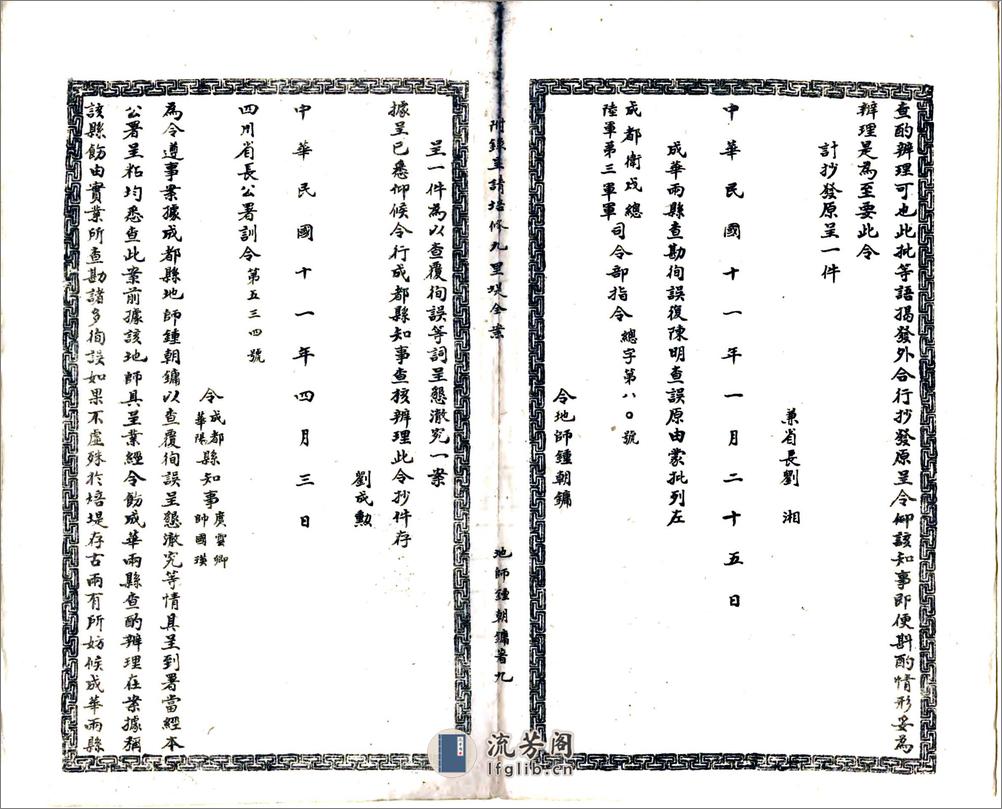 查酌辦理可也此批等語揭發外合行抄發原呈令仰該知事即便斟酌情形妥為
辦理是為至要此令
計抄發原呈一件
兼省長劉湘
中華民國十一年一月二十五日
成華兩縣查勘徇誤復陳明查誤原由蒙批列左
成都衛戍總
陸軍第三軍軍
司令部指令 總字第八〇號
令地師鍾朝鏞
附錄呈請培修九里堤全案
地師鍾朝鏞著 九
呈一件為以查覆徇誤等詞呈懇澈究一案
據呈已悉仰候令行成都縣知事查核辦理此令抄件存
劉成勳
中華民國十一年四月三日
四川省長公署訓令 第五三四號
令
成都
華陽
縣知事
廣雲卿
師國璜
為令遵事案據成都縣地師鍾朝鏞以查覆徇誤呈懇澈究等情具呈到署當經本
公署呈粘均悉查此案前據該地師具呈業經令飭成華兩縣查酌辦理在案據稱
該縣飭由實業所查勘諸多徇誤如果不虛殊於培堤存古兩有所妨候成華兩縣
流芳阁
lfglib.cn